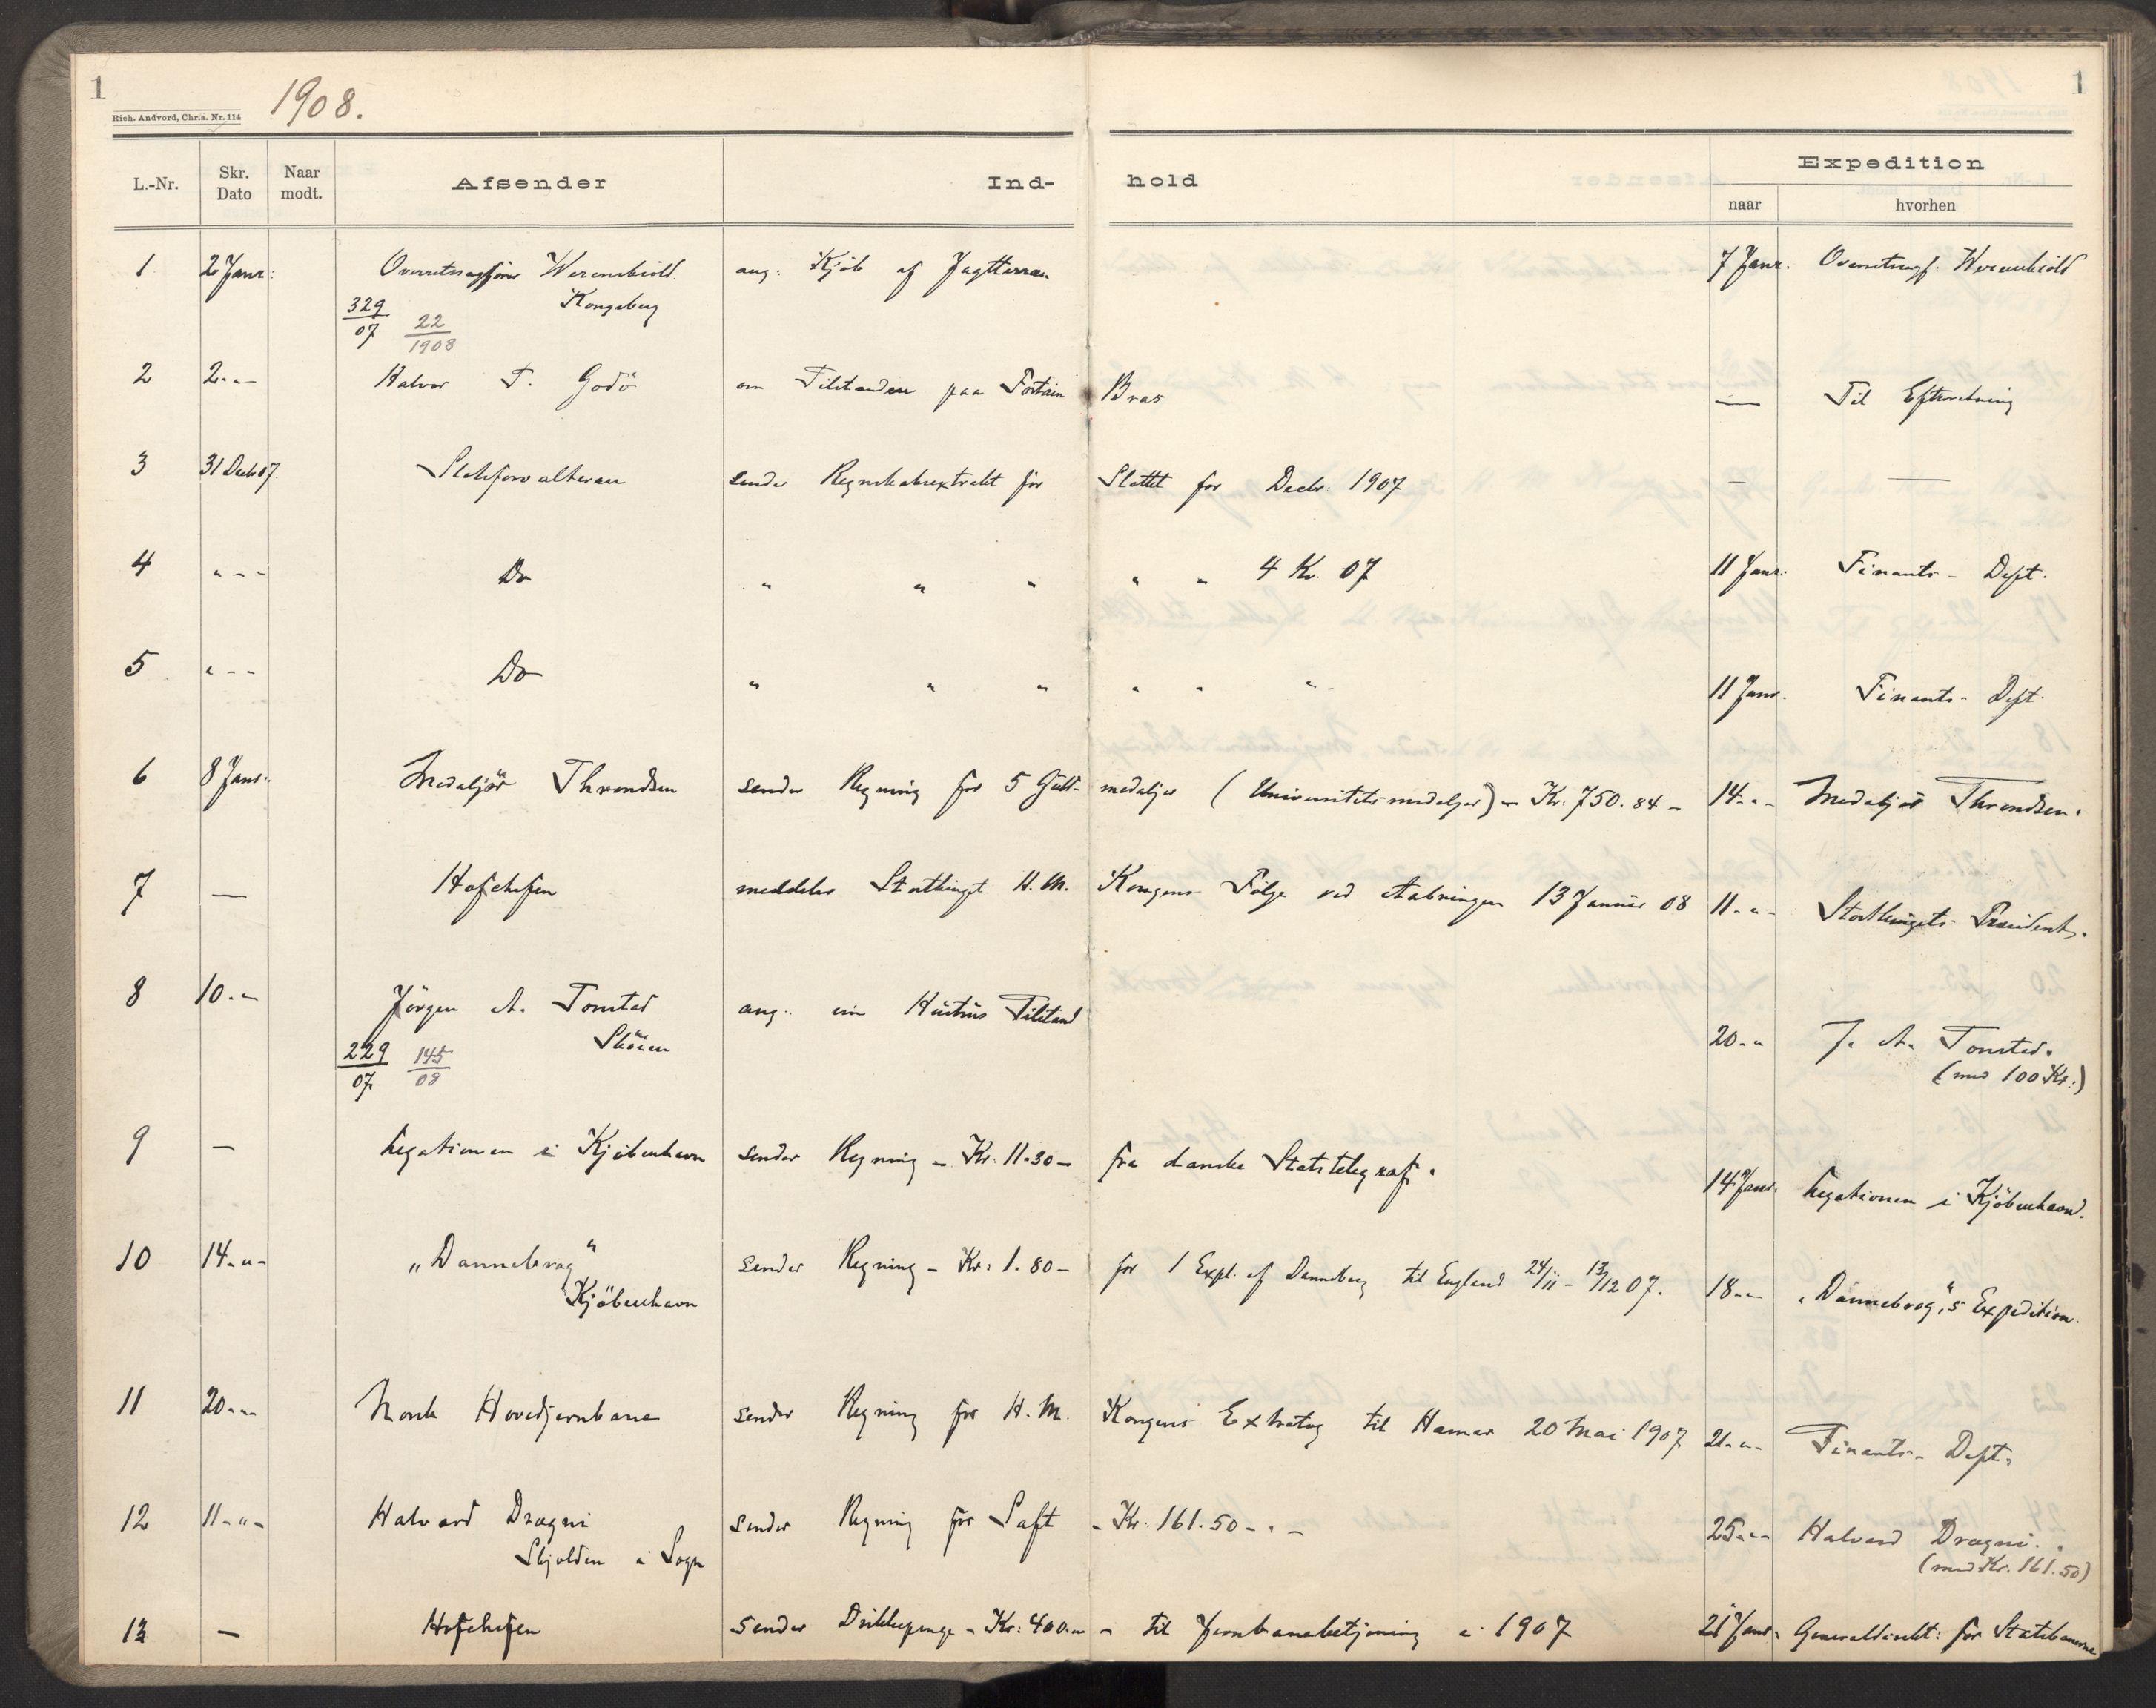 1
1
Rich. Andvord, Chr.a. Nr. 114
1908.
L.-Nr. Skr. Dato Naar modt. Afsender Ind- hold Expedition
naar hvorhen
1 2 Janr: Overretssagfører Werenskiold ang: Kjøb af Jagtterræn 7 Janr. Overretssagf: Werenskiold
Kongsberg
329/07 22/1908
2 2 - " - Halvor T. Godö om Tilstanden paa Bras — Til Efterretning
3 31 Decbr 07. Slotsforvalteren sender Regnskabsextrakt for Slottet for Decbr. 1907 — —
4 " - - Do " " " " " 4 Kv. 07 11 Janr: Finants - Dept.
5 " - - Do " " " " " " 11 Janr. Finants - Dept.
6 8 Janr. Medaljör Throndsen sender Regning for 5 Guld- medaljer (Universitetsmedaljer) - Kr. 750.84 - 14 - " - Medaljör Throndsen.
7 — Hofchefen meddeler Storthinget H. M. Kongens Følge ved Aabningen 13 Januar 08 11 - " - Storthingets Præsident.
8 10 - " Jörgen A. Tonstad ang: sin Tilstand
Sköien 20 - " J. A. Tonstad.
229/07. 145/08 (med 100 Kr.)
9 — Legationen i Kjöbenhavn sender Regning - Kr: 11.30 - fra danske Statstelegraf. 14 Janr. Legationen i Kjöbenhavn.
10 14 - " - „Dannebrog" sender Regning - Kr: 1.80 - for 1 Expl. af Dannebrog til England 24/11 - 13/12 07. 18 - " - „Dannebrog",s Expedition.
Kjöbenhavn
11 20 - " - Norsk Hovedjernbane sender Regning for H. M. Kongens Extratog til Hamar 20 Mai 1907 21 - " - Finants - Dept.
12 11 - " - Halvard Drægni sender Regning for Saft - Kr: 161.50 - " - 25 - " - Halvard Drægni.
Skjolden i Sogn (med Kr. 161.50)
13 — Hofchefen sender Drikkepenge - Kr: 400 - til Jernbanebetjening i 1907 21 Janr. Generaldirekt: for Statsbanerne